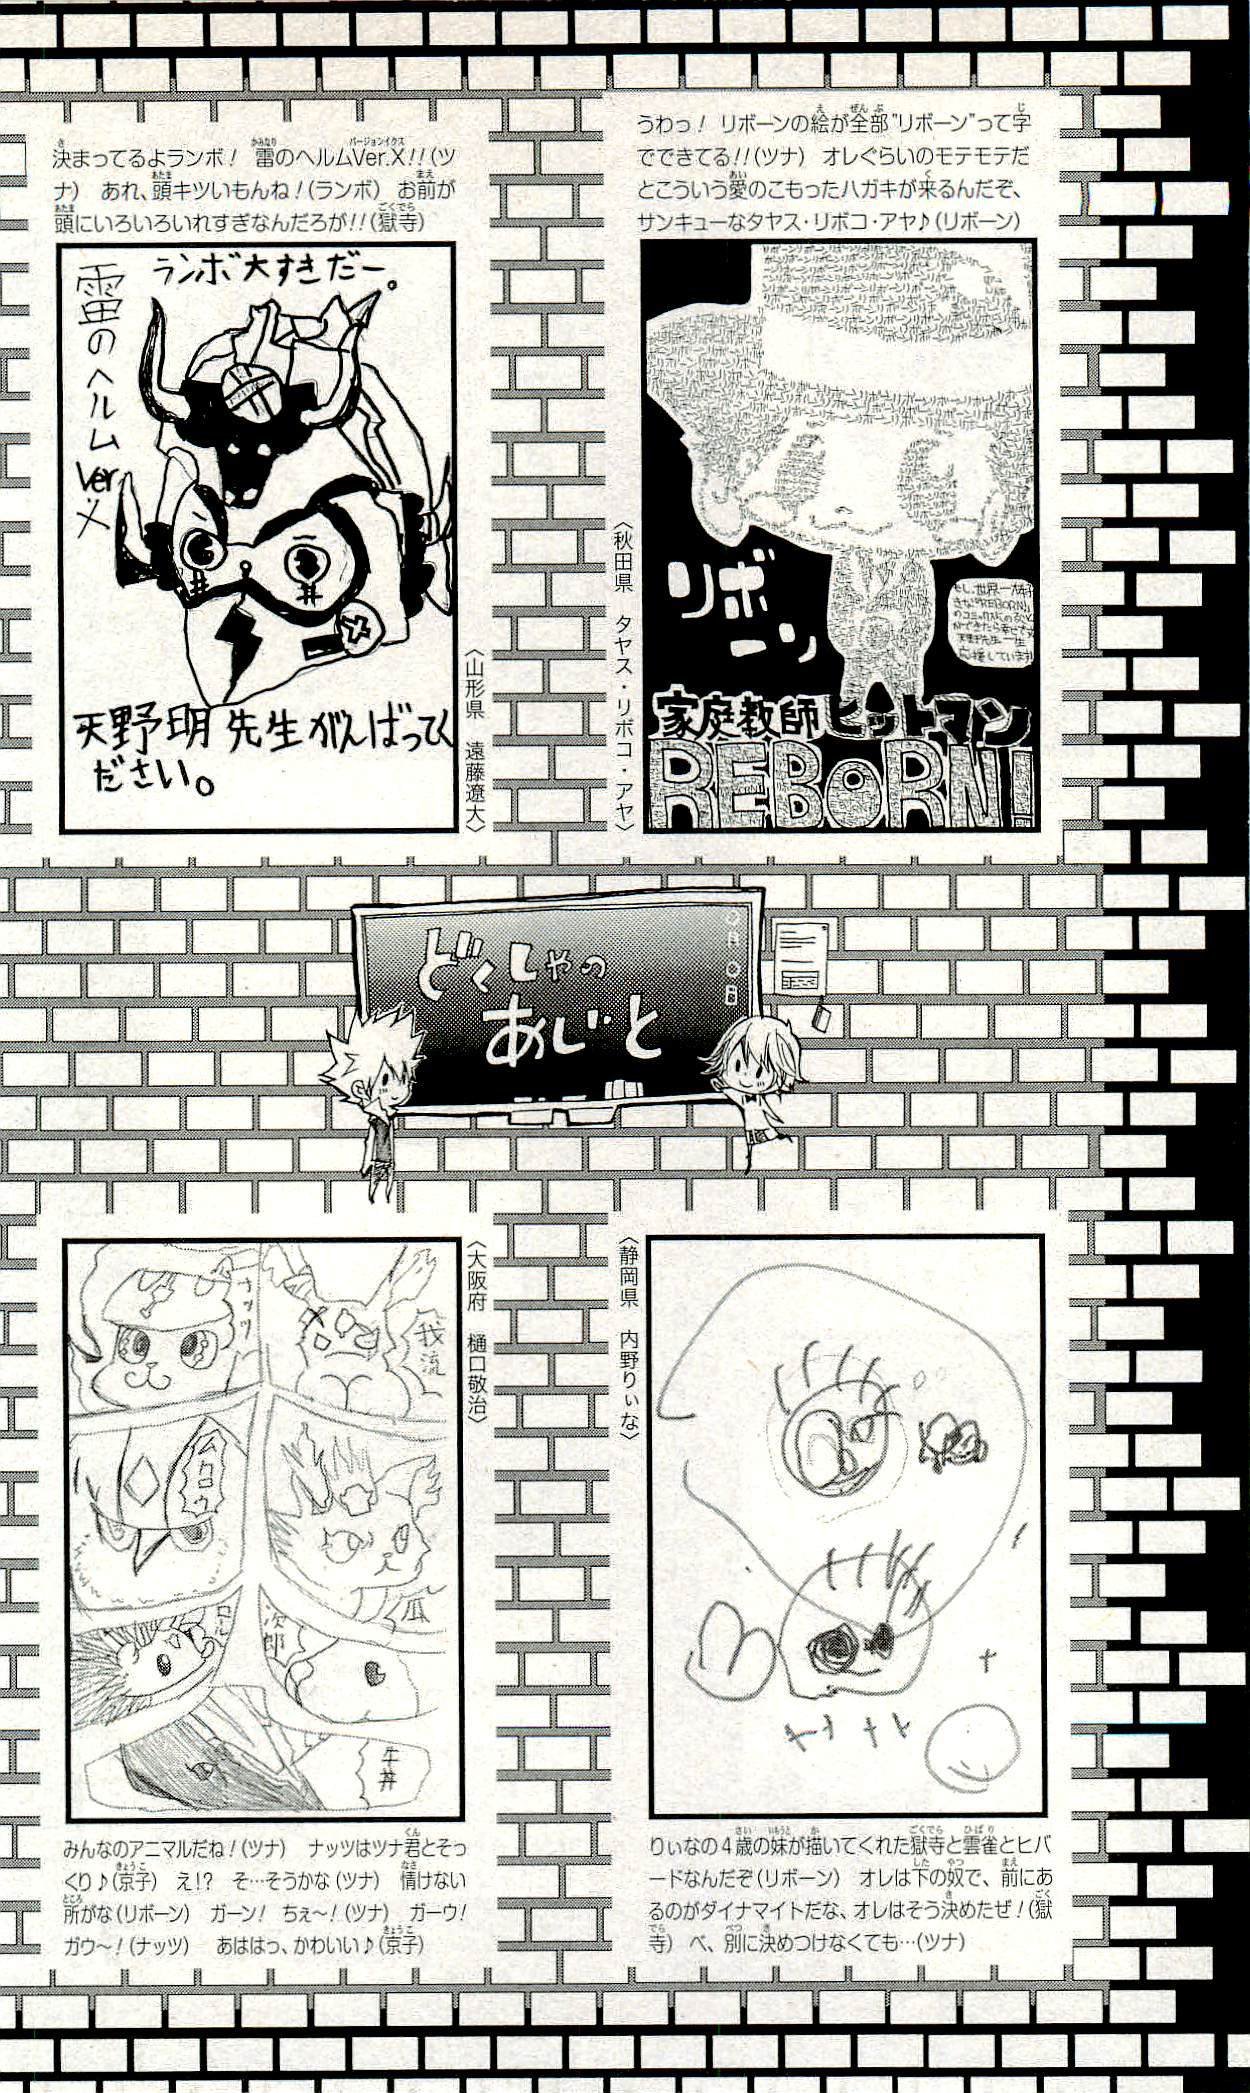 うわっ! リボーンの絵が全部"リボーン"って字
でできてる!!(ツナ) オレぐらいのモテモテだ
とこういう愛のこもったハガキが来るんだぞ、
サンキューなタヤス・リボコ・アヤ♪(リボーン)
リボーン
家庭教師ヒットマン
REBORN!
〈秋田県 タヤス・リボコ・アヤ〉
決まってるよランボ! 雷のヘルムVer.X!!(ツ
ナ) あれ、頭キツいもんね!(ランボ) お前が
頭にいろいろいれすぎなんだろが!!(獄寺)
ランボ大すきだー。
雷のヘルムVer.X
天野明先生がんばってく
ださい。
〈山形県 遠藤遼大〉
どくしゃの
あじと
〈静岡県 内野りぃな〉
りぃなの4歳の妹が描いてくれた獄寺と雲雀とヒバ
ードなんだぞ(リボーン) オレは下の奴で、前にあ
るのがダイナマイトだな、オレはそう決めたぜ!(獄
寺) べ、別に決めつけなくても…(ツナ)
〈大阪府 樋口敬治〉
ナッツ
我流
ムクロウ
瓜
次郎
牛丼
みんなのアニマルだね!(ツナ) ナッツはツナ君とそっ
くり♪(京子) え!? そ…そうかな(ツナ) 情けない
所がな(リボーン) ガーン! ちぇ〜!(ツナ) ガーウ!
ガウ〜!(ナッツ) あははっ、かわいい♪(京子)